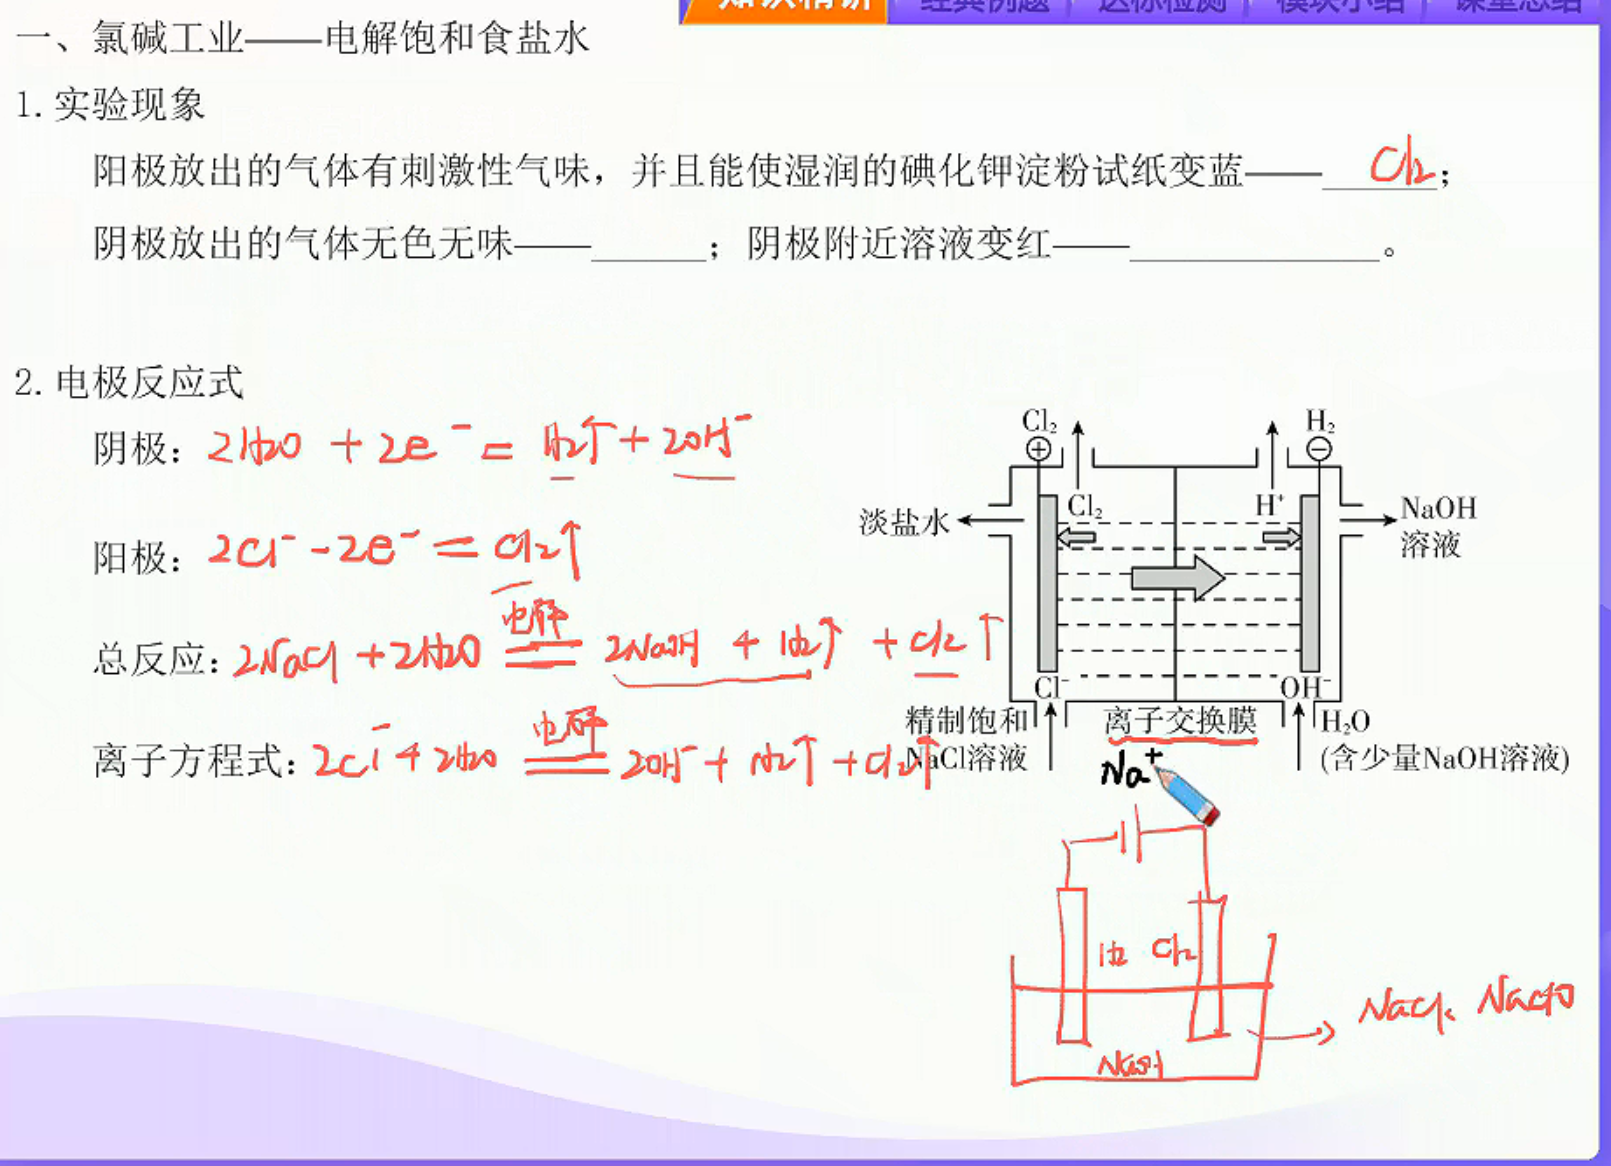 知识精讲 经典例题 达标检测 模块小结 课堂总结
一、氯碱工业——电解饱和食盐水
1. 实验现象
阳极放出的气体有刺激性气味，并且能使湿润的碘化钾淀粉试纸变蓝——Cl₂；
阴极放出的气体无色无味——______；阴极附近溶液变红——____________。
2. 电极反应式
阴极：2H₂O + 2e⁻ = H₂↑ + 2OH⁻
阳极：2Cl⁻ - 2e⁻ = Cl₂↑
总反应：2NaCl + 2H₂O 电解 2NaOH + H₂↑ + Cl₂↑
离子方程式：2Cl⁻ + 2H₂O 电解 2OH⁻ + H₂↑ + Cl₂↑
Cl₂ H₂
+ −
Cl₂ H⁺
淡盐水 NaOH
溶液
Cl⁻ OH⁻
精制饱和 离子交换膜 H₂O
NaCl溶液 (含少量NaOH溶液)
Na⁺
H₂ Cl₂
NaCl、NaClO
NaOH